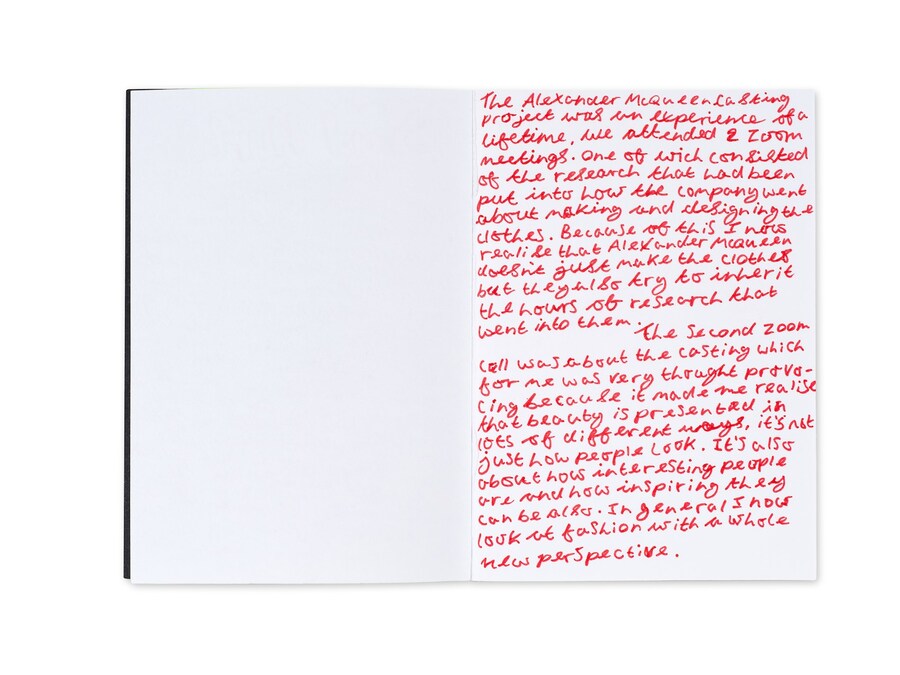 The Alexander McQueen casting
project was an experience of a
lifetime, we attended 2 Zoom
meetings. One of wich consisted
of the research that had been
put into how the company went
about making and designing the
clothes. Because of this I now
realise that Alexander McQueen
doesn't just make the clothes
but they also try to inherit
the hours of research that
went into them. The Second Zoom
call was about the casting which
for me was very thought provo-
cing because it made me realise
that beauty is presented in
lots of different ways, it's not
just how people look. It's also
about how interesting people
are and how inspiring they
can be also. In general I now
look at fashion with a whole
new perspective.